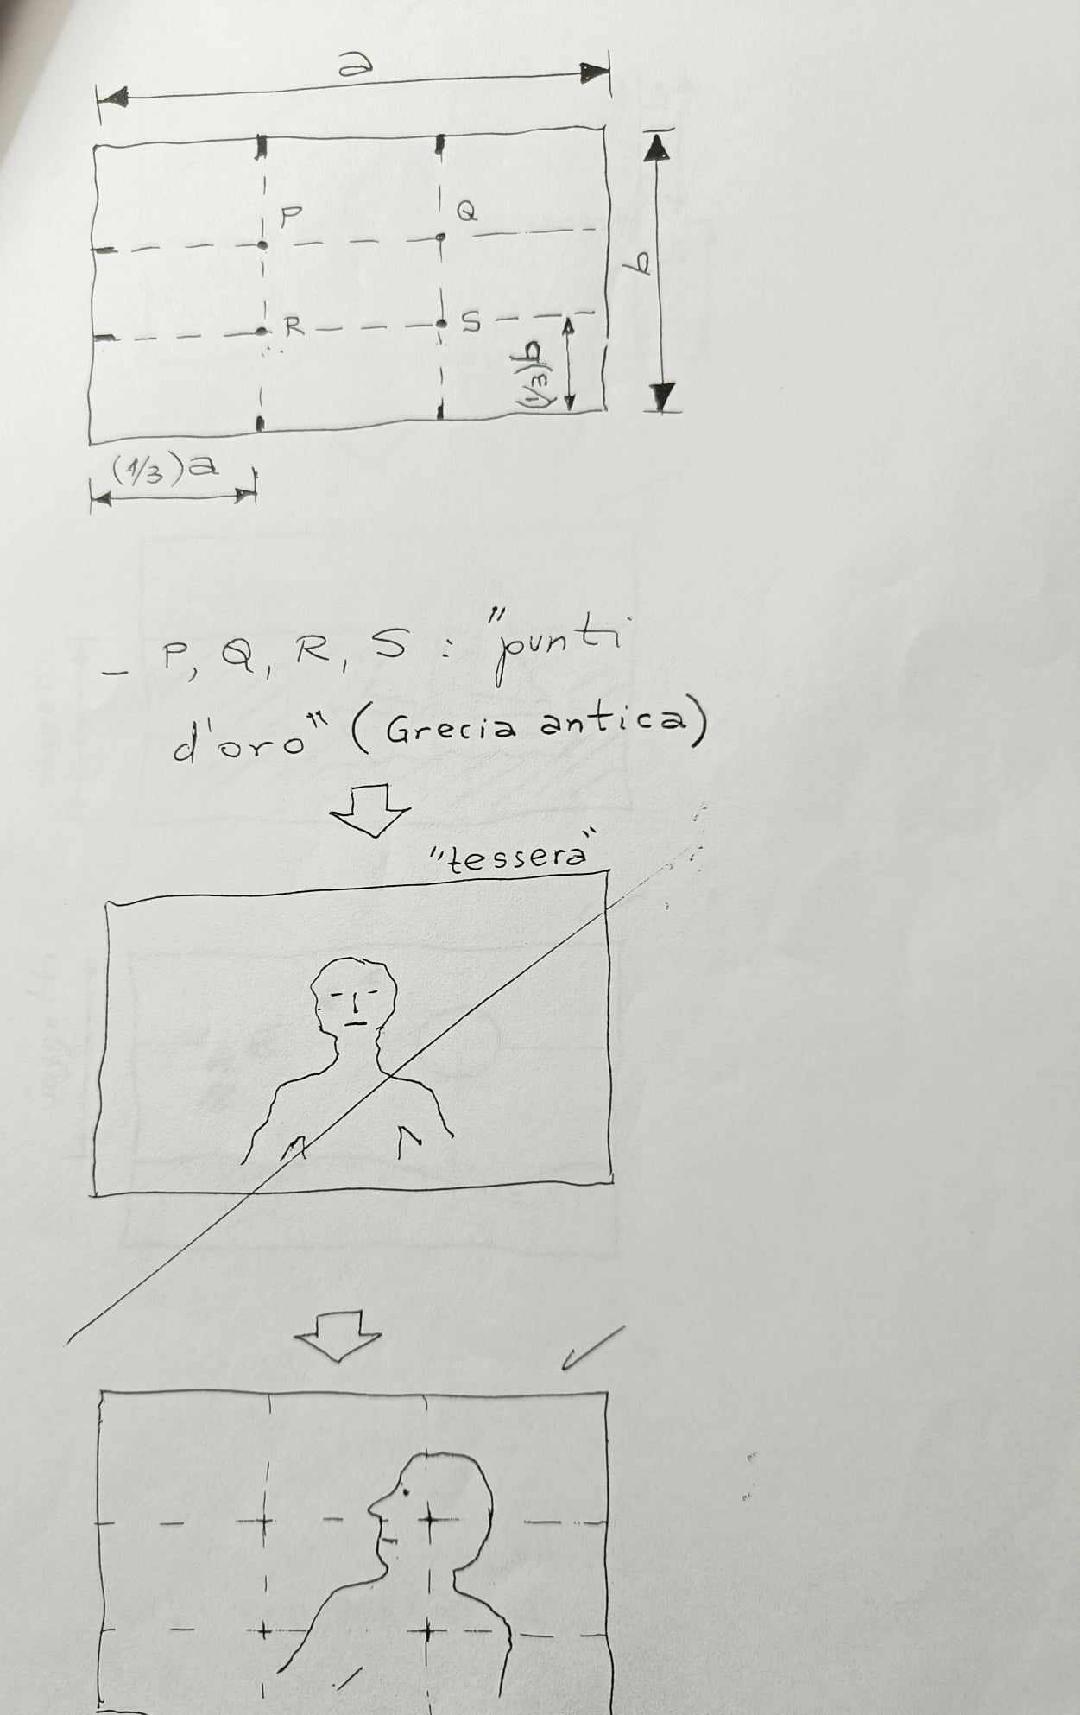 a
P
Q
b
R
S
(1/3)b
(1/3)a
– P, Q, R, S : "punti
d'oro" (Grecia antica)
"tessera"